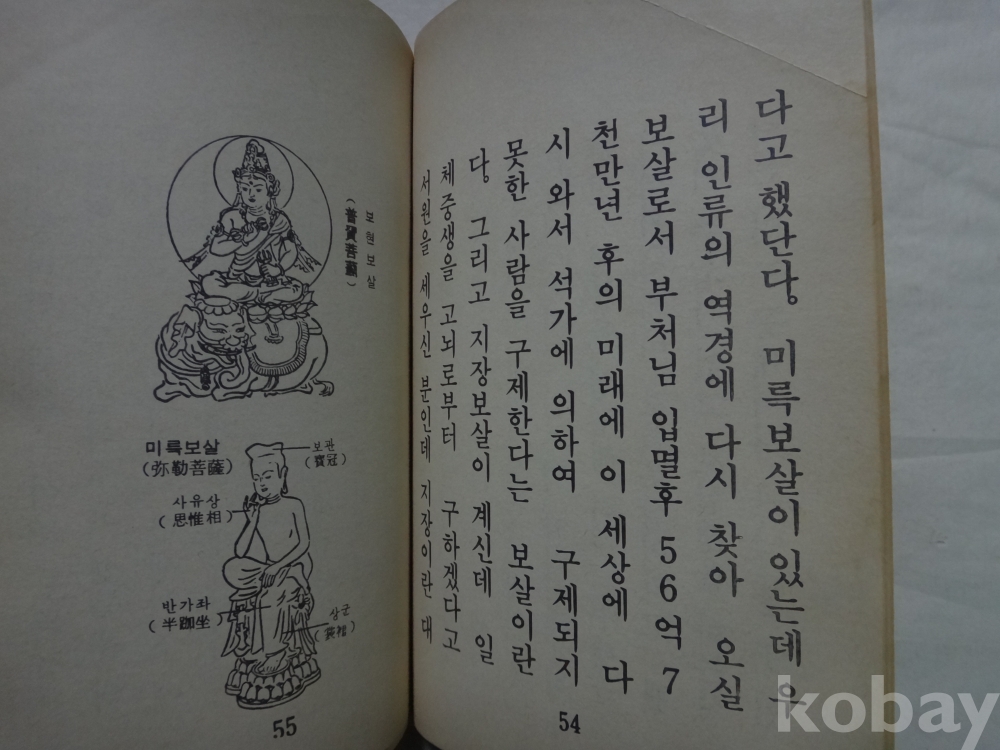 다고 했단다. 미륵보살이 있는데 우
리 인류의 역경에 다시 찾아 오실
보살로서 부처님 입멸후 56억 7
천만년 후의 미래에 이 세상에 다
시 와서 석가에 의하여 구제되지
못한 사람을 구제한다는 보살이란
다. 그리고 지장보살이 계신데 일
체중생을 고뇌로부터 구하겠다고
서원을 세우신 분인데 지장이란 대
54
보현보살
(普賢菩薩)
미륵보살
(弥勒菩薩)
보관
(寶冠)
사유상
(思惟相)
반가좌
(半跏坐)
상군
55
kobay